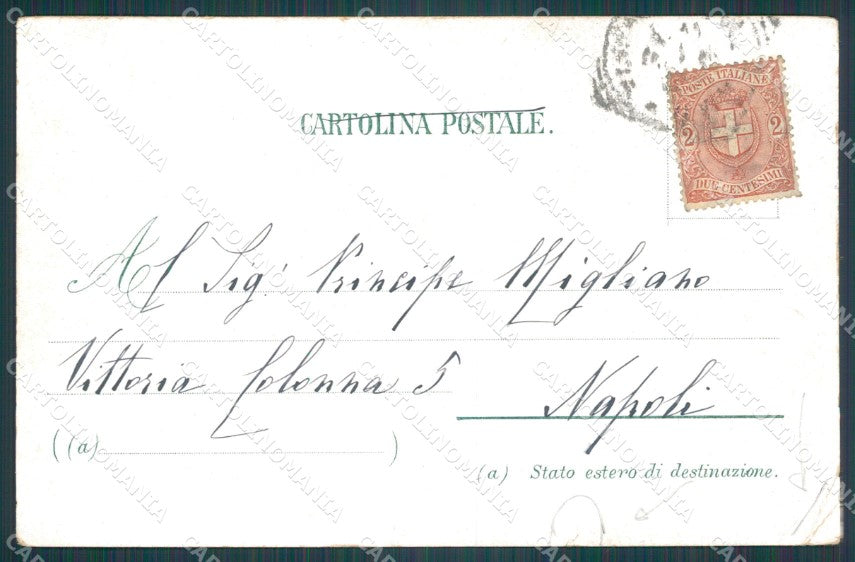 CARTOLINA POSTALE.
POSTE ITALIANE
2 2
DUE CENTESIMI
Al Sig.r Principe Migliano
Vittoria Colonna 5
Napoli
((a) )
(a) Stato estero di destinazione.
CARTOLINOMANIA